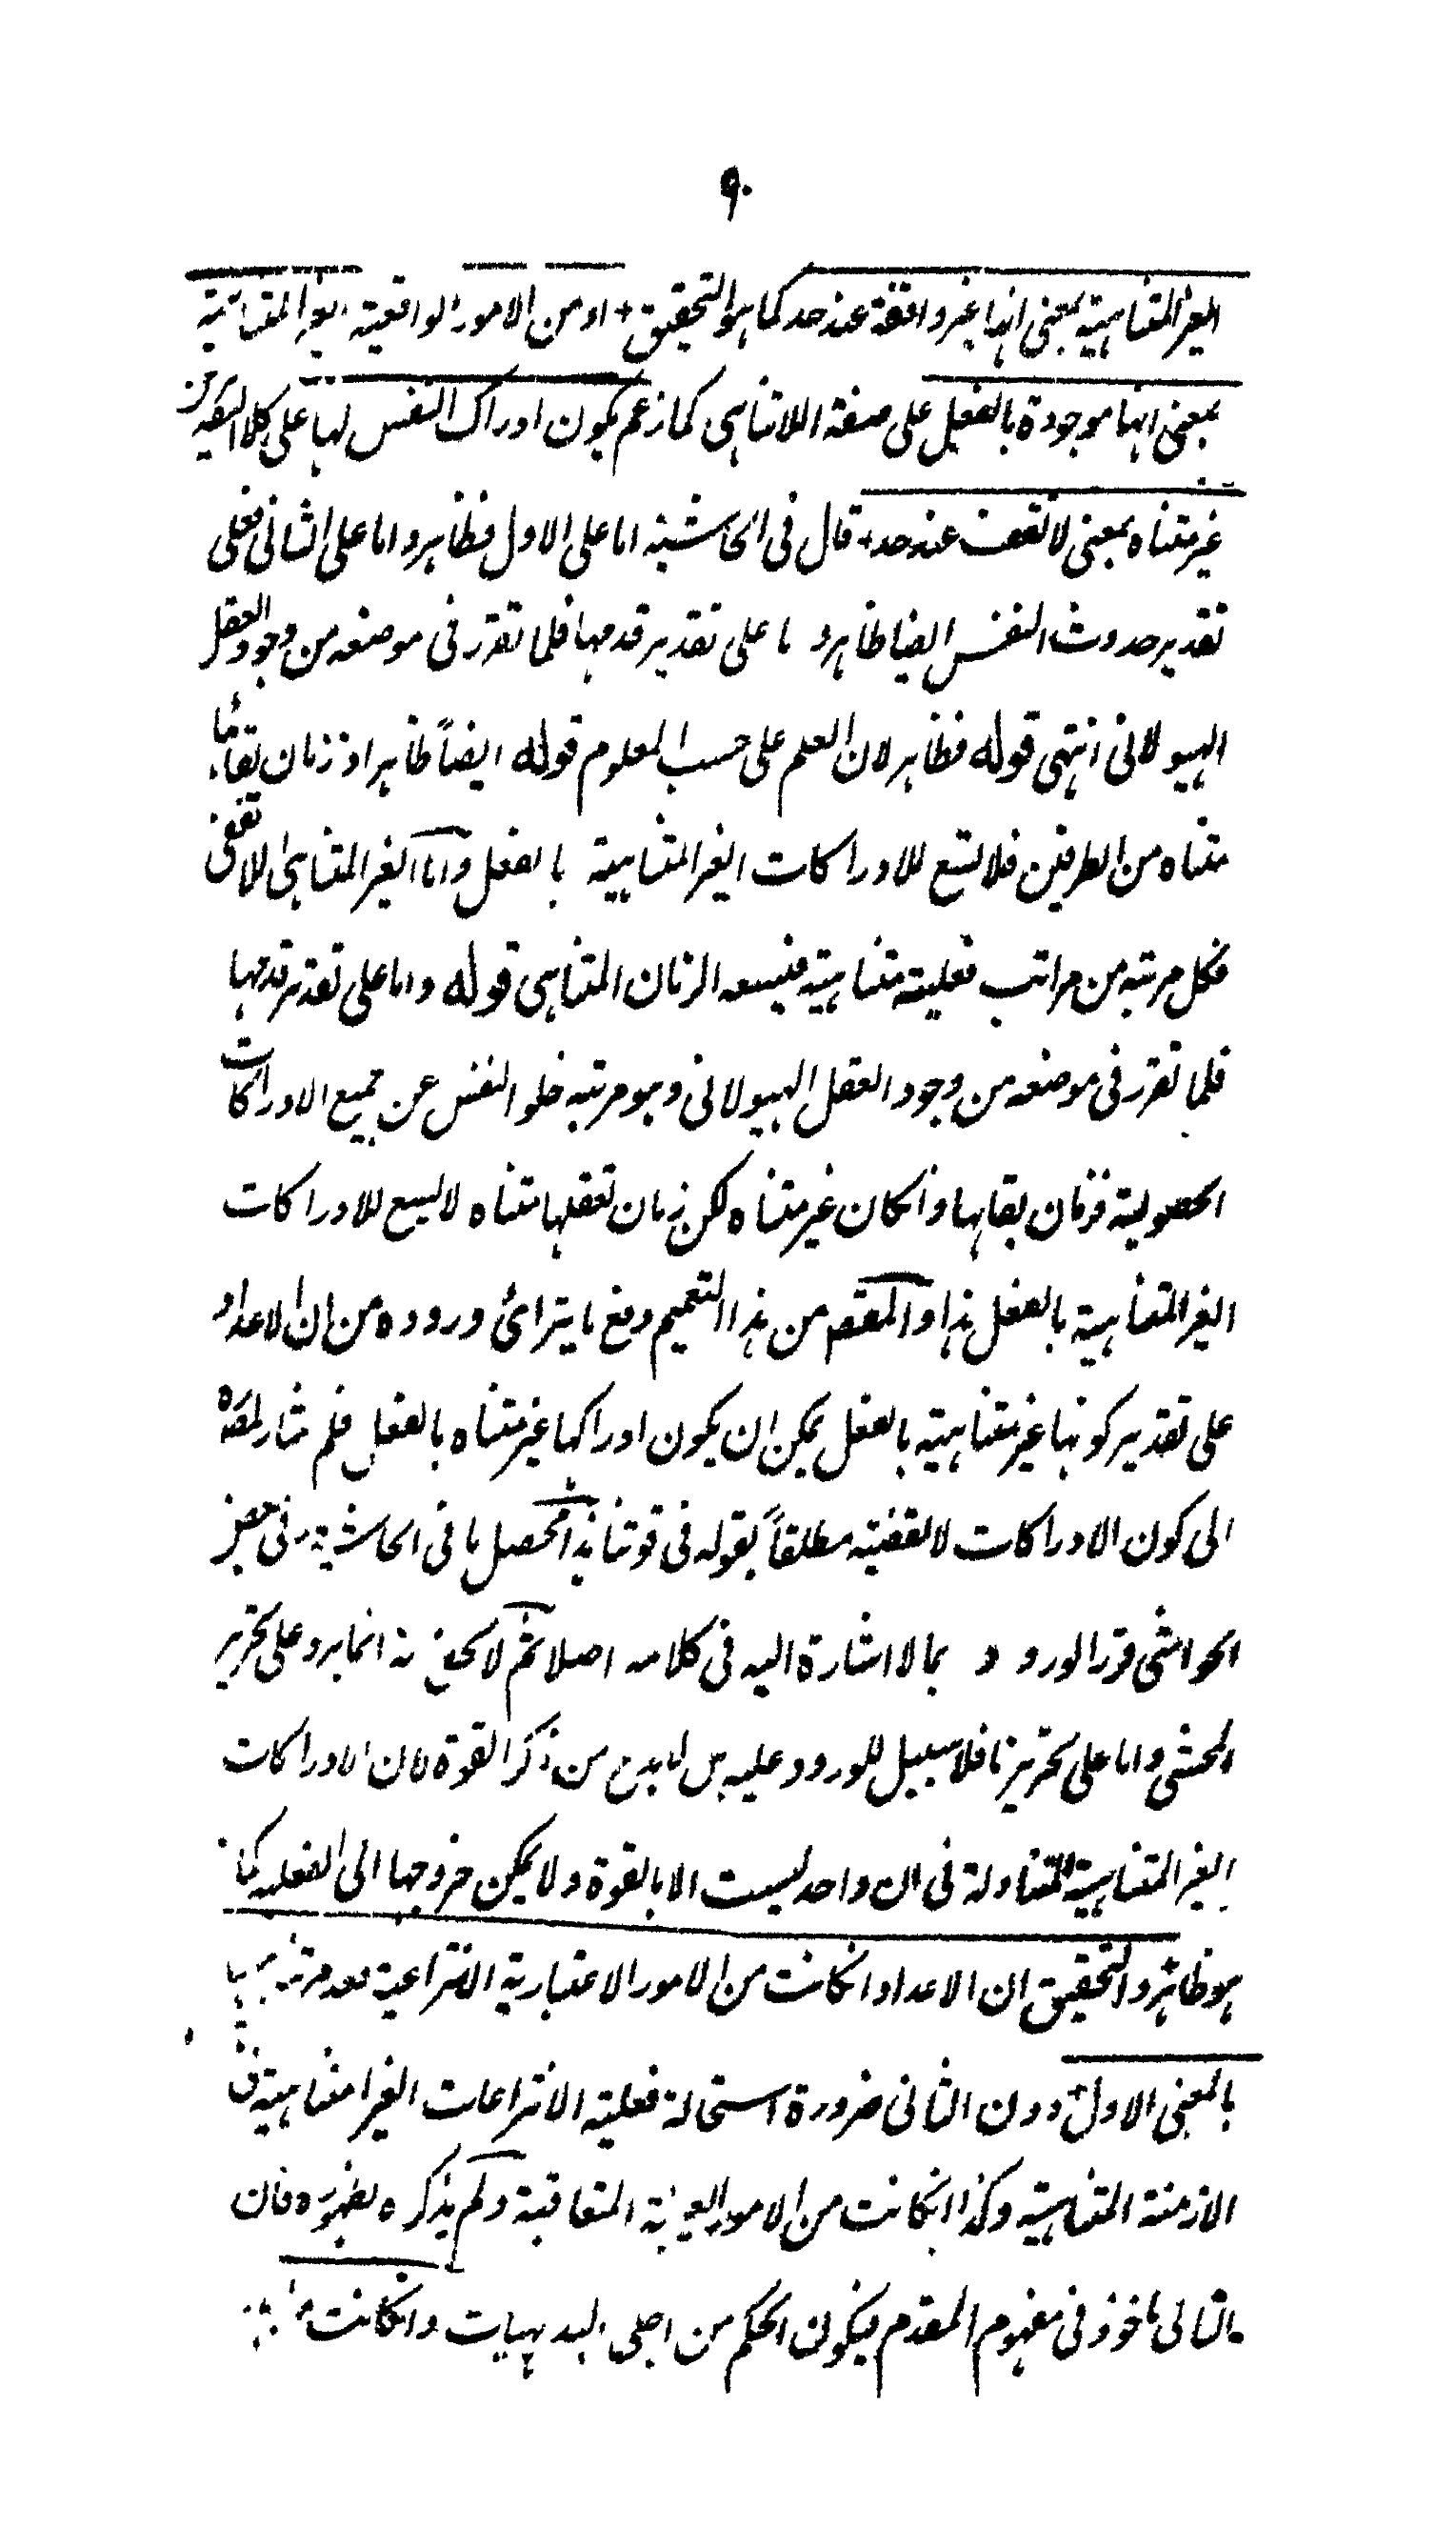 ٩٠
الغير المتناهية بمعنى انها غير واقفة عند حد كما هو التحقيق + او من الامور الواقعية الغير المتناهية
بمعنى انها موجودة بالفعل على صفة اللاتناهى كما زعم يكون ادراك النفس لها على كلا التقديرين
غير متناه بمعنى لا تقف عند حد + قال فى الحاشية اما على الاول فظاهر واما على الثانى فعلى
تقدير حدوث النفس ايضا ظاهر و اما على تقدير قدمها فلما تقرر فى موضعه من وجود العقل
الهيولانى انتهى قوله فظاهر لان العلم على حسب المعلوم قوله ايضاً ظاهر اذ زمان بقائها
متناه من الطرفين فلا يسع للادراكات الغير المتناهية بالفعل واما الغير المتناهى اللاتقفى
فكل مرتبة من مراتب فعليته متناهية فيسعه الزمان المتناهى قوله واما على تقدير قدمها
فلما تقرر فى موضعه من وجود العقل الهيولانى وهو مرتبة خلو النفس عن جميع الادراكات
الحصولية فزمان بقائها وانكان غير متناه لكن زمان تعقلها متناه لا يسع للادراكات
الغير المتناهية بالفعل هذا والمقصد من هذا التعميم دفع ما يترائ وروده من ان الاعداد
على تقدير كونها غير متناهية بالفعل يمكن ان يكون ادراكها غير متناه بالفعل فلم
الى كون الادراكات لا تقفية مطلقاً بقوله فى قوتنا هذا محصل ما فى الحاشية وفى بعض
الحواشى قرر الورود بما لا اشارة اليه فى كلامه اصلا ثم لا يخفى انه انما يرد على تحرير
المحشى واما على تحريرنا فلا سبيل للورود عليه بل لابد من ذكر القوة لان الادراكات
الغير المتناهية المتناولة فى ان واحد ليست الا بالقوة ولا يمكن خروجها الى الفعلية كما
هو ظاهر والتحقيق ان الاعداد انكانت من الامور الاعتبارية الانتزاعية فعدم تناهيها
بالمعنى الاول + دون الثانى ضرورة استحالة فعلية الانتزاعات الغير المتناهية فى
الازمنة المتناهية وكذا انكانت من الامور العينية المتعاقبة ولم يذكره لظهوره فان
التالى ماخوذ فى مفهوم المقدم فيكون الحكم من اجلى البديهيات وانكانت